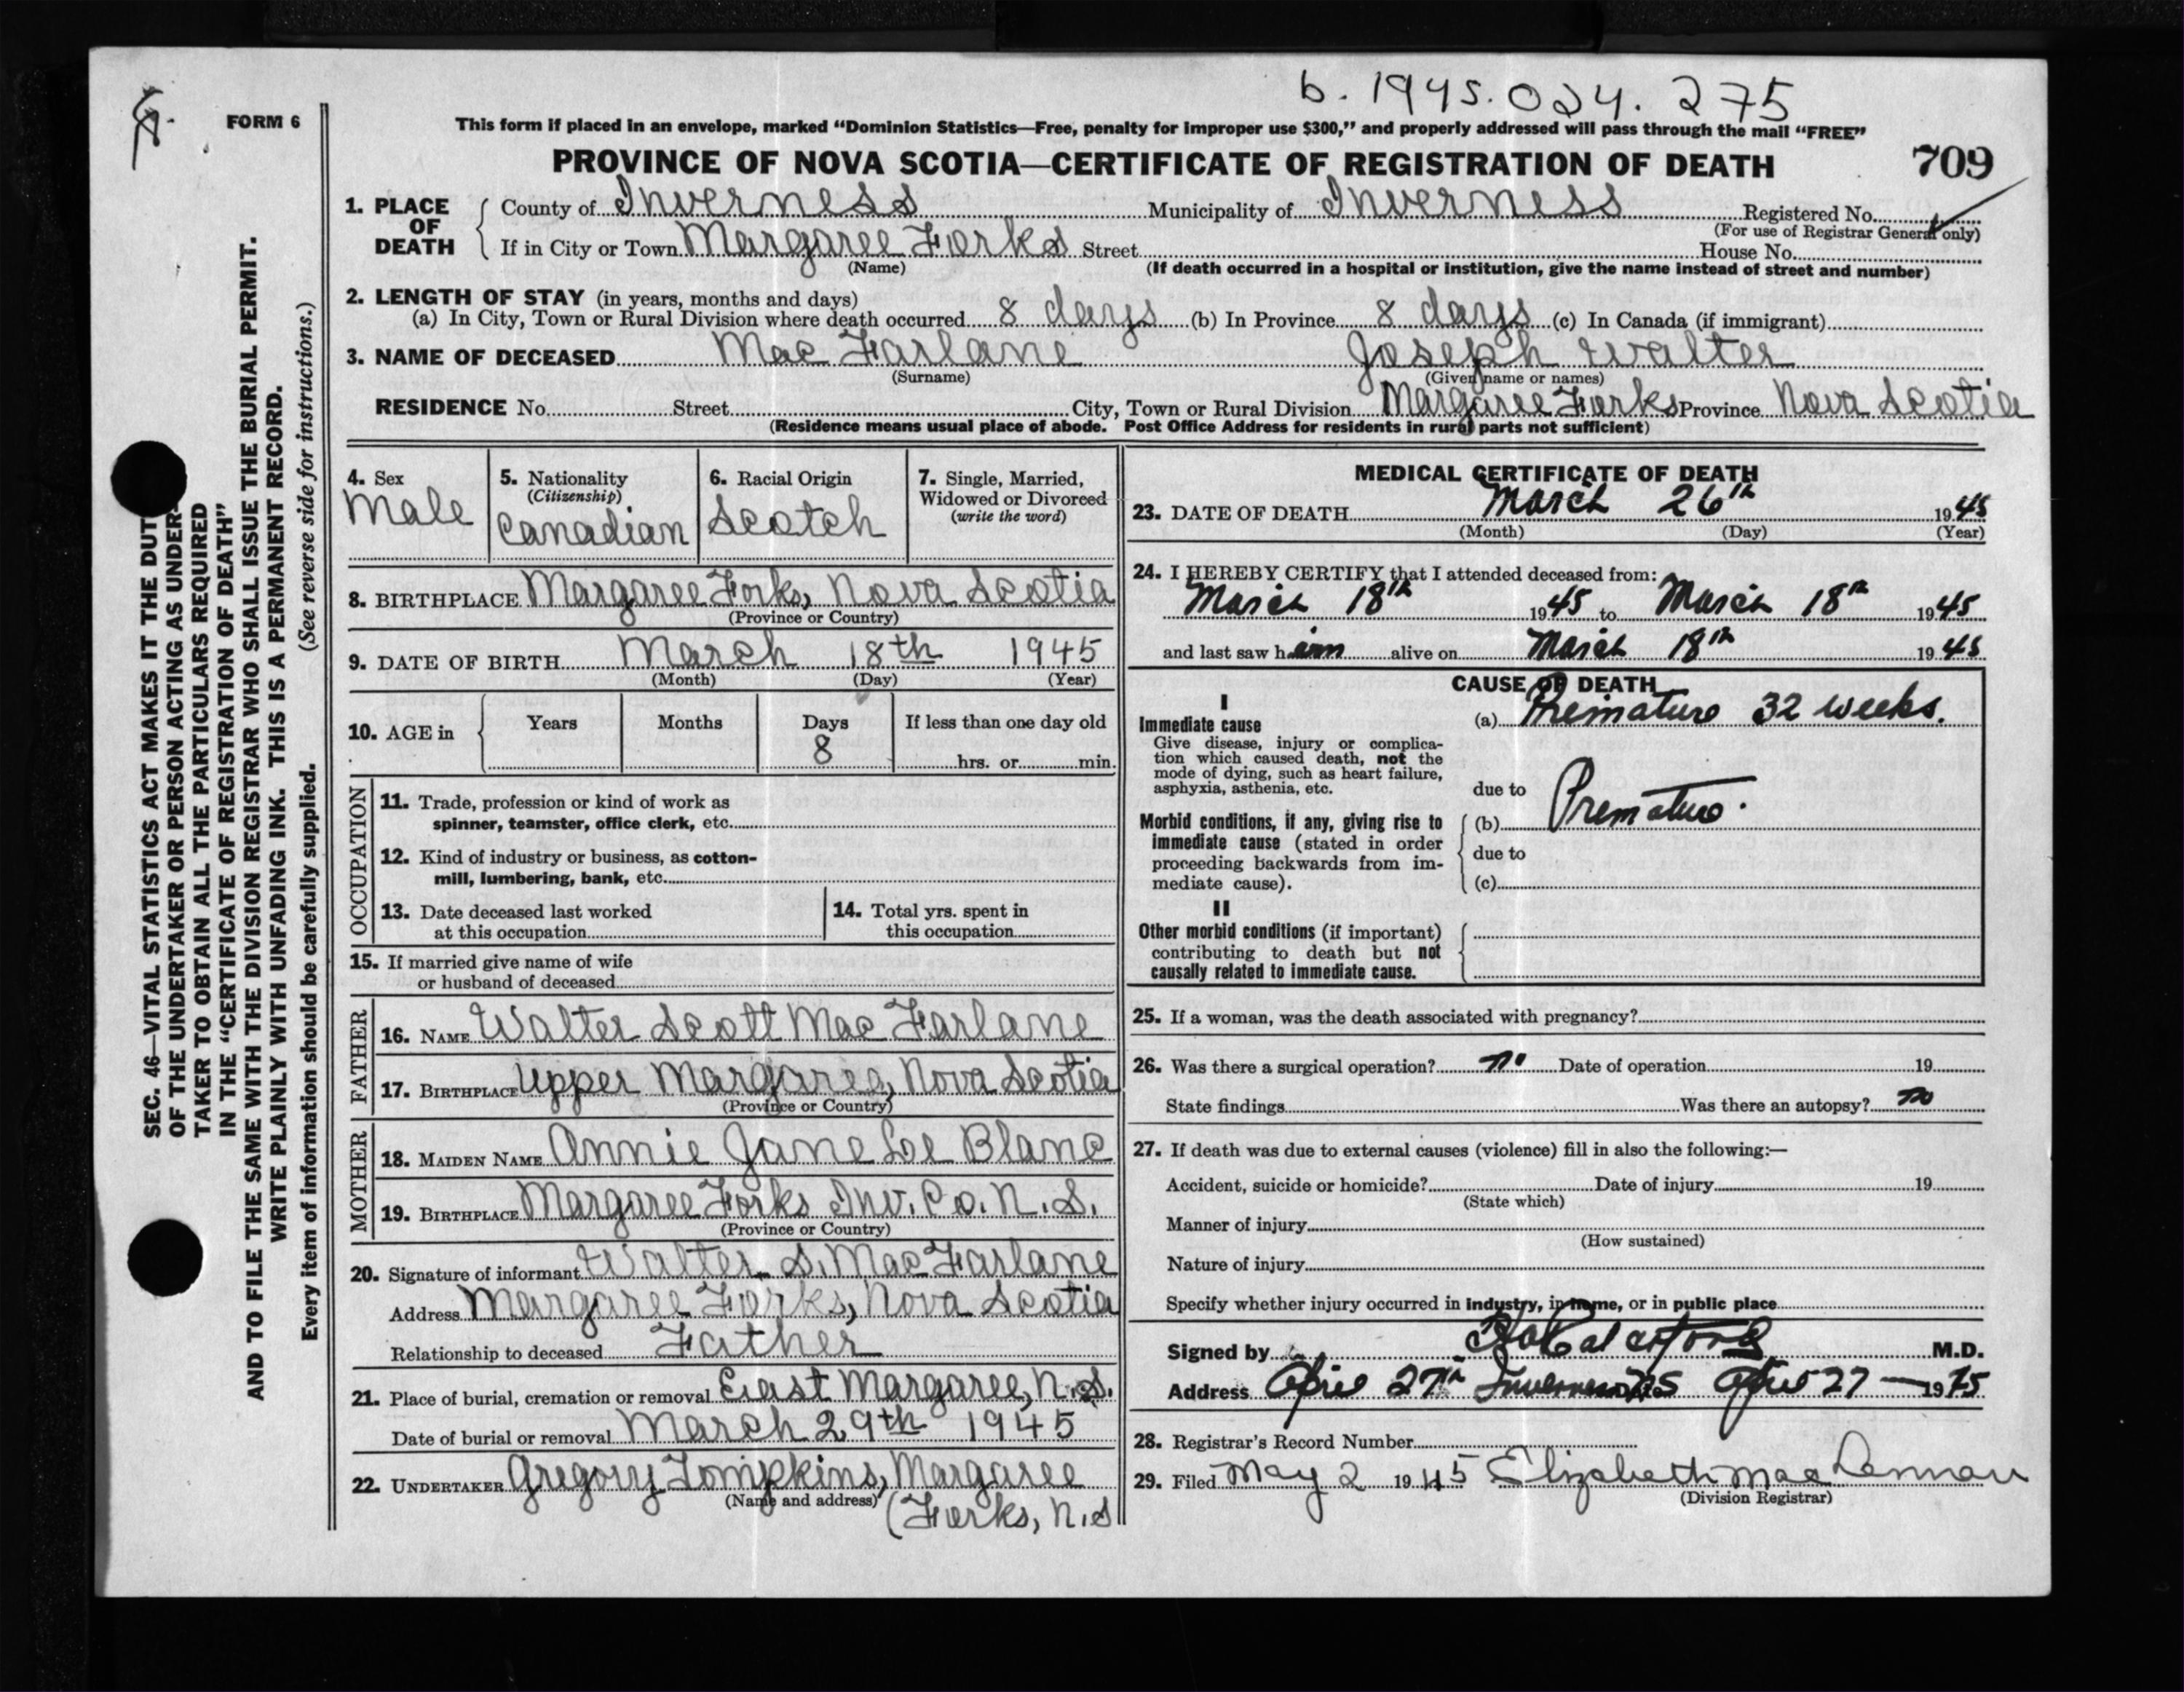 b. 1945. 024. 275
FORM 6
This form if placed in an envelope, marked “Dominion Statistics—Free, penalty for improper use $300,” and properly addressed will pass through the mail “FREE”
PROVINCE OF NOVA SCOTIA—CERTIFICATE OF REGISTRATION OF DEATH 709
1. PLACE OF DEATH
County of Inverness Municipality of Inverness Registered No.
(For use of Registrar General only)
If in City or Town Margaree Forks Street House No.
(Name) (If death occurred in a hospital or institution, give the name instead of street and number)
2. LENGTH OF STAY (in years, months and days)
(a) In City, Town or Rural Division where death occurred 8 days (b) In Province 8 days (c) In Canada (if immigrant)
3. NAME OF DECEASED Mac Farlane Joseph Walter
(Surname) (Given name or names)
RESIDENCE No. Street City, Town or Rural Division Margaree Forks Province Nova Scotia
(Residence means usual place of abode. Post Office Address for residents in rural parts not sufficient)
4. Sex
Male
5. Nationality
(Citizenship)
Canadian
6. Racial Origin
Scotch
7. Single, Married,
Widowed or Divorced
(write the word)
8. BIRTHPLACE Margaree Forks, Nova Scotia
(Province or Country)
9. DATE OF BIRTH March 18th 1945
(Month) (Day) (Year)
10. AGE in Years Months Days If less than one day old
8 hrs. or min.
OCCUPATION
11. Trade, profession or kind of work as
spinner, teamster, office clerk, etc.
12. Kind of industry or business, as cotton-
mill, lumbering, bank, etc.
13. Date deceased last worked
at this occupation
14. Total yrs. spent in
this occupation
15. If married give name of wife
or husband of deceased
FATHER
16. NAME Walter Scott Mac Farlane
17. BIRTHPLACE Upper Margaree, Nova Scotia
(Province or Country)
MOTHER
18. MAIDEN NAME Annie Jane Le Blanc
19. BIRTHPLACE Margaree Forks Inv. Co. N.S.
(Province or Country)
20. Signature of informant Walter S. Mac Farlane
Address Margaree Forks, Nova Scotia
Relationship to deceased Father
21. Place of burial, cremation or removal East Margaree, N.S.
Date of burial or removal March 29th 1945
22. UNDERTAKER Gregory Tompkins, Margaree
(Name and address) (Forks, N.S
MEDICAL CERTIFICATE OF DEATH
23. DATE OF DEATH March 26th 1945
(Month) (Day) (Year)
24. I HEREBY CERTIFY that I attended deceased from:
March 18th 1945 to March 18th 1945
and last saw him alive on March 18th 1945
CAUSE OF DEATH
I
Immediate cause
Give disease, injury or complica-
tion which caused death, not the
mode of dying, such as heart failure,
asphyxia, asthenia, etc.
(a) Premature 32 weeks.
due to
Morbid conditions, if any, giving rise to
immediate cause (stated in order
proceeding backwards from im-
mediate cause).
(b) Premature.
due to
(c)
II
Other morbid conditions (if important)
contributing to death but not
causally related to immediate cause.
25. If a woman, was the death associated with pregnancy?
26. Was there a surgical operation? no Date of operation 19
State findings Was there an autopsy? no
27. If death was due to external causes (violence) fill in also the following:—
Accident, suicide or homicide? Date of injury 19
(State which)
Manner of injury
(How sustained)
Nature of injury
Specify whether injury occurred in industry, in home, or in public place
Signed by M.D.
Address April 27th Inverness NS April 27 — 1945
28. Registrar's Record Number
29. Filed May 2 1945 Elizabeth Mac Lennan
(Division Registrar)
SEC. 46—VITAL STATISTICS ACT MAKES IT THE DUT
OF THE UNDERTAKER OR PERSON ACTING AS UNDER-
TAKER TO OBTAIN ALL THE PARTICULARS REQUIRED
IN THE “CERTIFICATE OF REGISTRATION OF DEATH”
AND TO FILE THE SAME WITH THE DIVISION REGISTRAR WHO SHALL ISSUE THE BURIAL PERMIT.
WRITE PLAINLY WITH UNFADING INK. THIS IS A PERMANENT RECORD.
Every item of information should be carefully supplied. (See reverse side for instructions.)